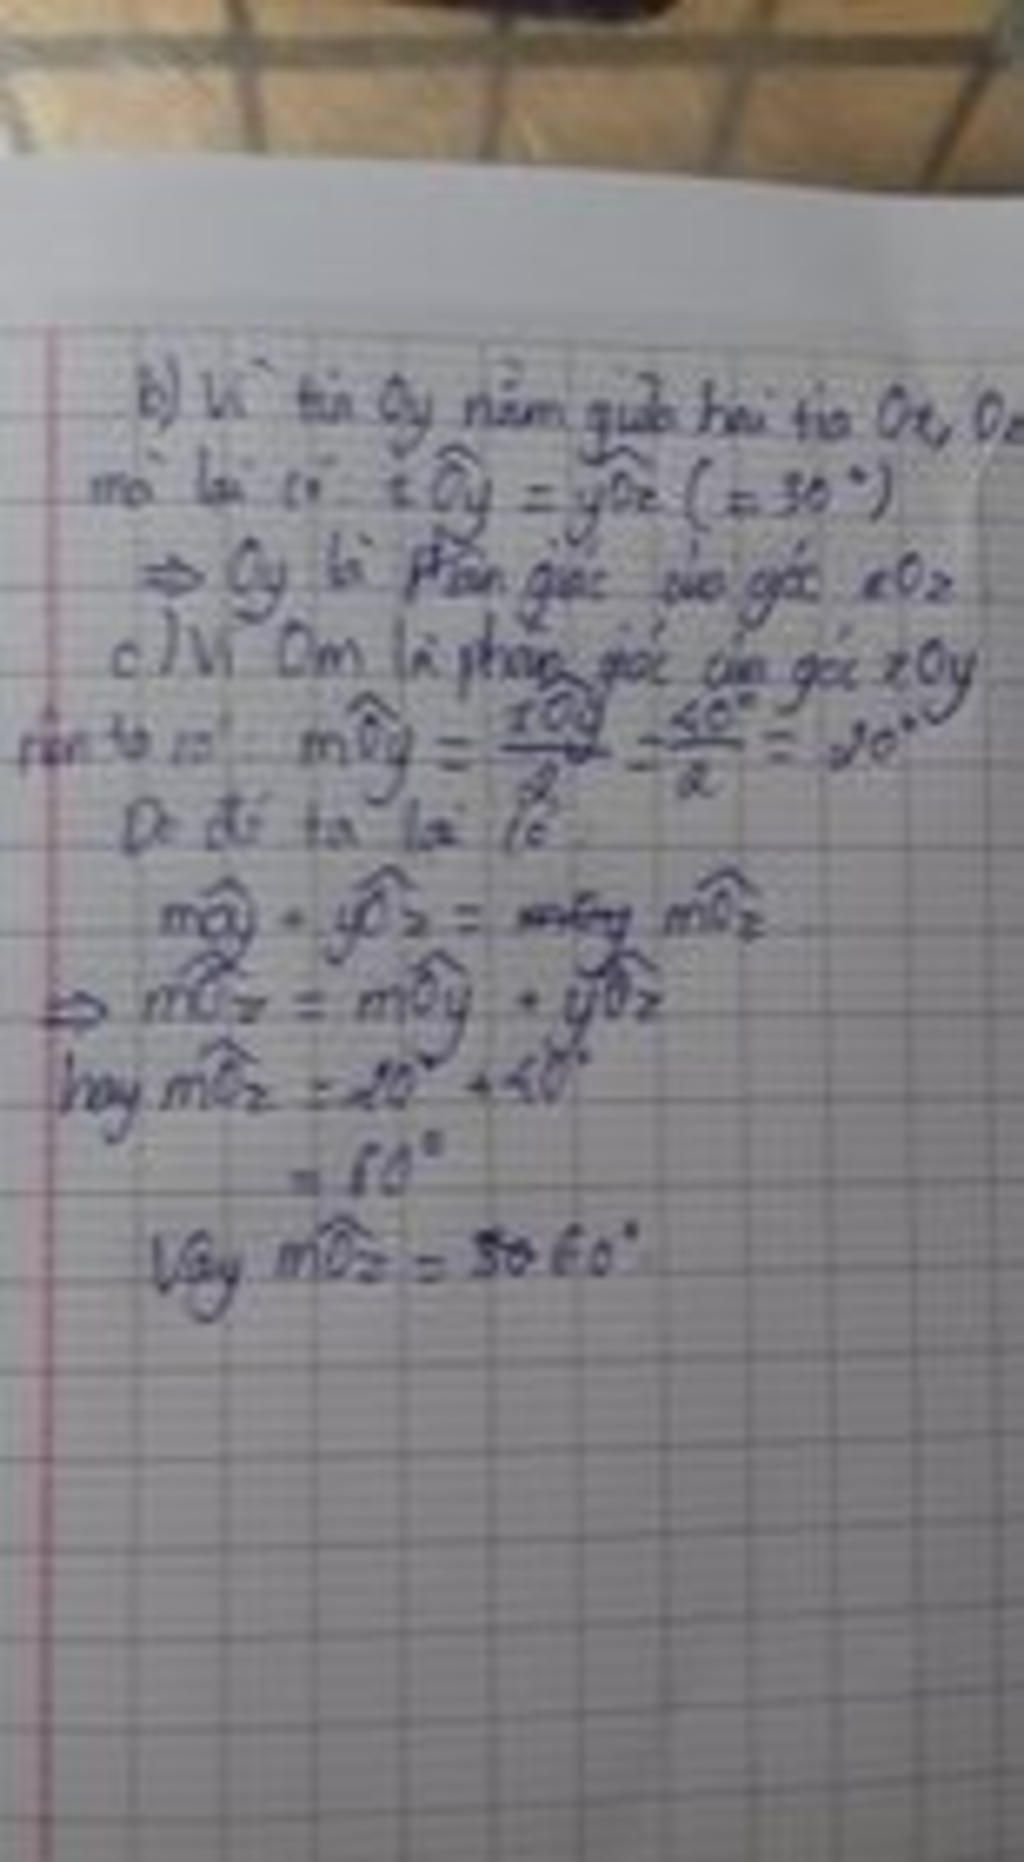 b) Vì tia Oy nằm giữa hai tia Ox, Oz
mà lại có xÔy = yÔz ( = 30°)
⇒ Oy là phân giác của góc xOz
c) Vì Om là phân giác của góc xOy
nên ta có mÔy = xÔy/2 = 40°/2 = 20°
Do đó ta lại có
mÔy + yÔz = mÔz
⇒ mÔz = mÔy + yÔz
hay mÔz = 20° + 40°
= 60°
Vậy mÔz = 60°